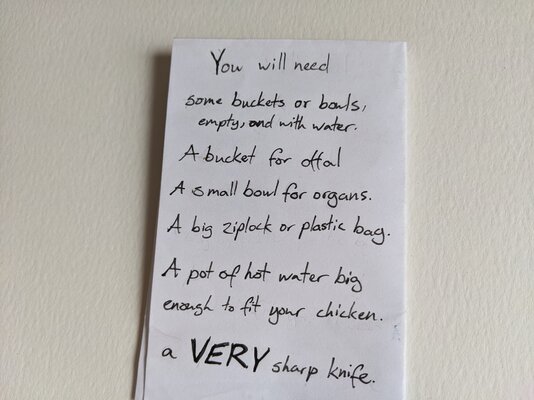 You will need
some buckets or bowls,
empty, and with water.
A bucket for offal
A small bowl for organs.
A big ziplock or plastic bag.
A pot of hot water big
enough to fit your chicken.
a VERY sharp knife.